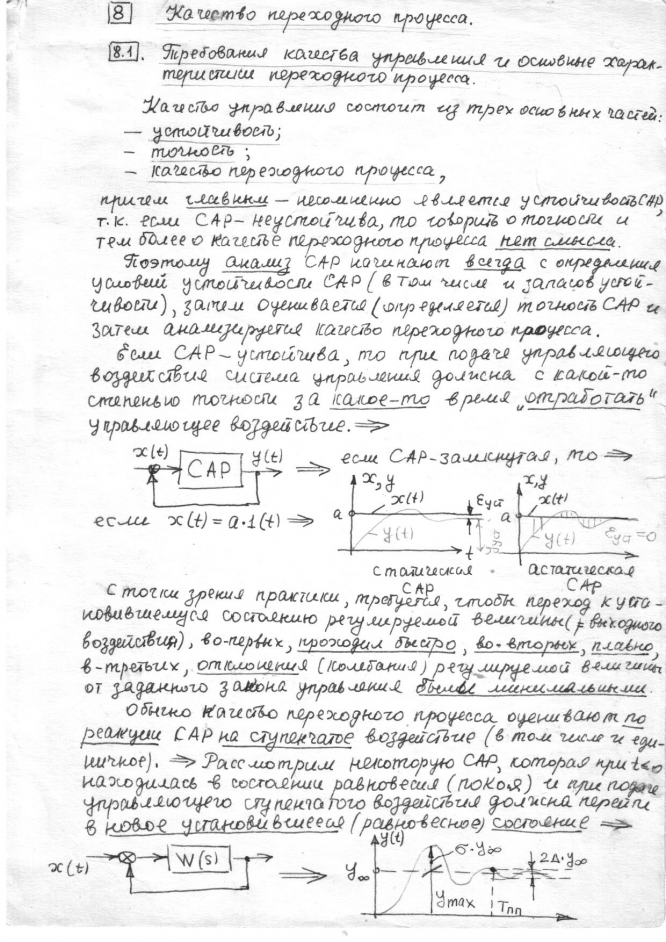 8 Качество переходного процесса.
8.1. Требования качества управления и основные харак-
теристики переходного процесса.
Качество управления состоит из трех основных частей:
— устойчивость;
— точность;
— качество переходного процесса,
причем главным — несомненно является устойчивость САР,
т.к. если САР — неустойчива, то говорить о точности и
тем более о качестве переходного процесса нет смысла.
Поэтому анализ САР начинают всегда с определения
условий устойчивости САР (в том числе и запасов устой-
чивости), затем оценивается (определяется) точность САР и
затем анализируется качество переходного процесса.
Если САР — устойчива, то при подаче управляющего
воздействия система управления должна с какой-то
степенью точности за какое-то время „отработать"
управляющее воздействие. ⇒
x(t) САР y(t) ⇒ если САР-замкнутая, то ⇒
если x(t) = a·1(t) ⇒
x, y x(t) a y(t) εуст yуст t
статическая САР
x, y x(t) a y(t) εуст = 0
астатическая САР
С точки зрения практики, требуется, чтобы переход к уста-
новившемуся состоянию регулируемой величины (= выходного
воздействия), во-первых, проходил быстро, во-вторых, плавно,
в-третьих, отклонения (колебания) регулируемой величины
от заданного закона управления были минимальными.
Обычно качество переходного процесса оценивают по
реакции САР на ступенчатое воздействие (в том числе и еди-
ничное). ⇒ Рассмотрим некоторую САР, которая при t<0
находилась в состоянии равновесия (покоя) и при подаче
управляющего ступенчатого воздействия должна перейти
в новое установившееся (равновесное) состояние ⇒
x(t) W(s) ⇒ y(t) y∞ σ·y∞ 2Δ·y∞
ymax Tпп